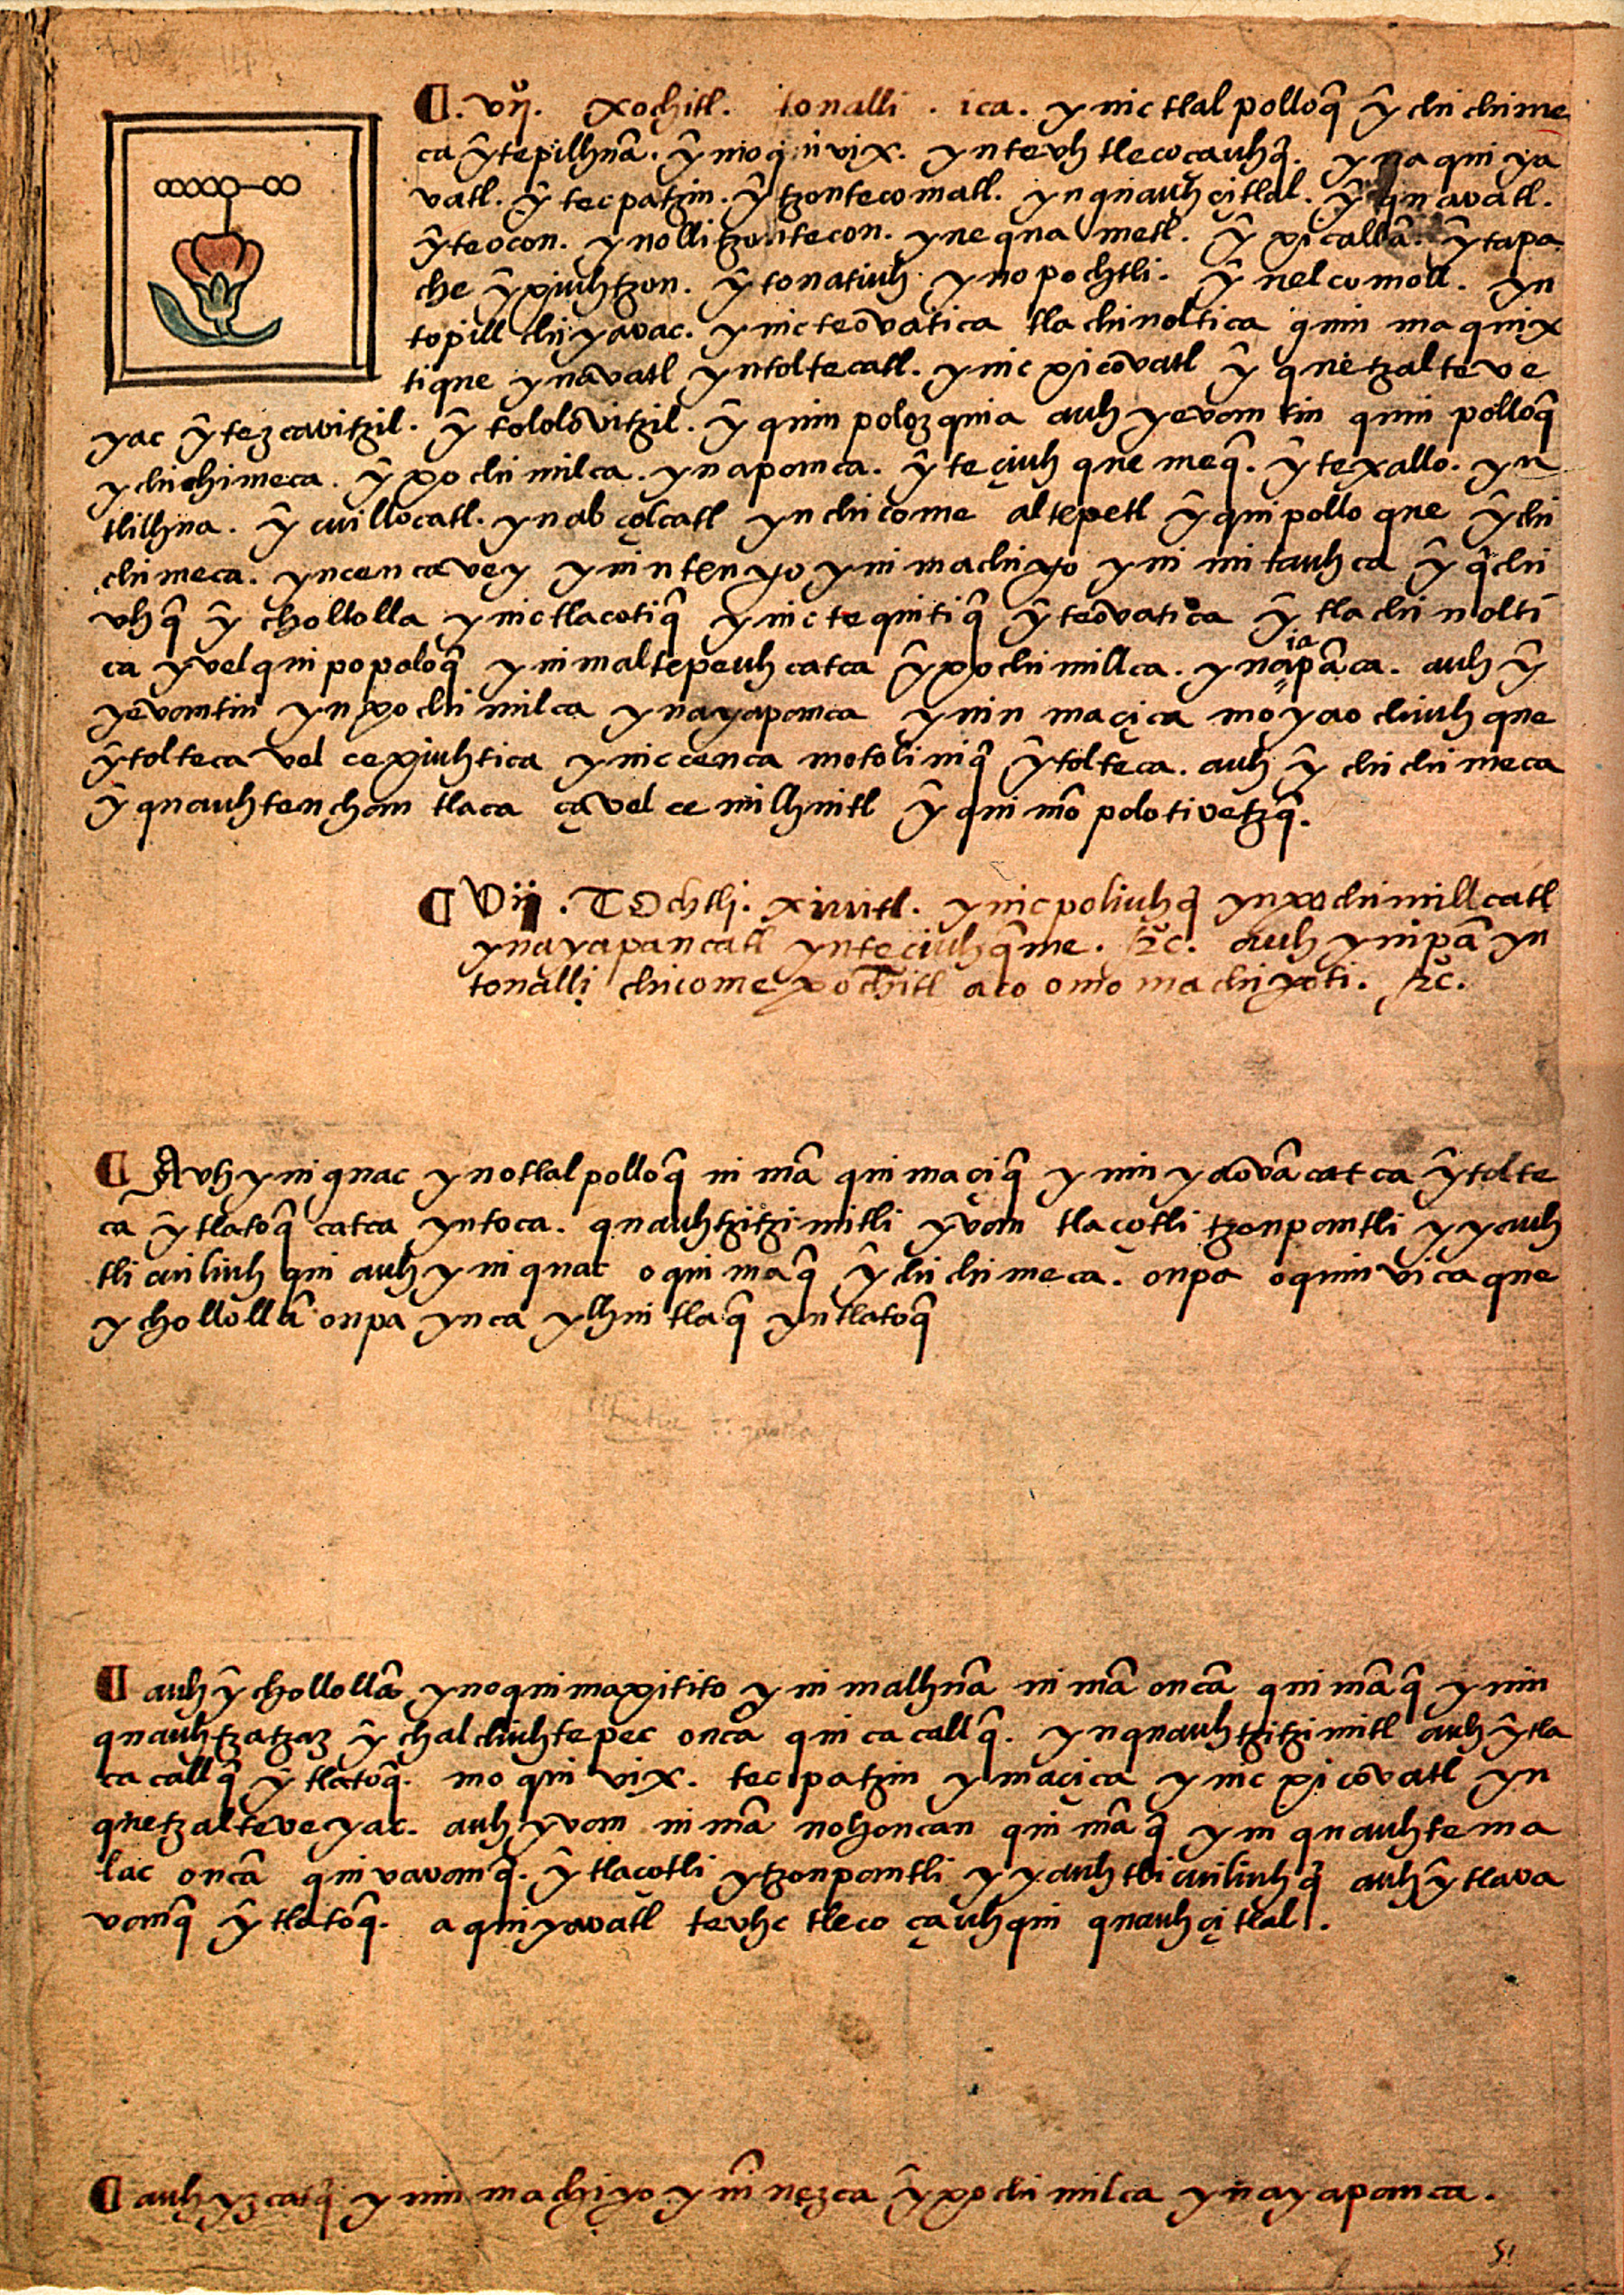 ¶. vij. xochitl. tonalli. ica. ynic tlalpolloq̄ ȳ chichime
ca ȳtepilhuā. ȳ moquivix. yntevhtlecocauhq̄. ynaquiya
vatl. ȳ tecpatzin. ȳ tzontecomatl. ynquauhçitlal. ȳ quavatl.
ȳteocon. ynollitzontecon. ynequametl. ȳ xicallā. ȳtapa
che ȳxiuhtzon. ȳ tonatiuh. ynopochtli. ȳ nelcomoll. yn
topilltliyavac. ynic teōvatica tlachinoltica quin maquix
tique ynāvatl yntoltecatl. ynic xicōvatl ȳ quetzalteve
yac ȳtezcavitzil. ȳ tololōvitzil. ȳ quimpolozquia auh yevamtin quin polloq̄
ychichimeca. ȳ xochimilca. ynapamca. ȳ teçiuhquemeq̄. ȳ texallo. yn
tlilhua. ȳ cuillocatl. ynabçolcatl yn chicome altepetl ȳ quipolloque ȳchi
chimeca. yncencavey yninTenyo ynimachiyo yn initauhca ȳ q̄chi
vhq̄ ȳ chollolla ynic tlacotiq̄ ynic tequitiq̄ ȳ teōvatica ȳ tlachinolti
ca yvel quipopoloq̄ ynimaltepeuh catca ȳxochimillca. ynaiapāca. auh ȳ
yevamtin ynxochimilca ynayapamca ynin maçica moyaochiuhque
ȳtolteca vel cexiuhtica ynic cenca motoliniq̄ ȳtolteca. auh ȳ chichimeca
ȳ quauhtencham tlaca çavel cemilhuitl ȳ quimōpolotivetzq̄.
¶ Vij. Tochtli. xivitl. ynic poliuhq̄ ynxochimillcatl
ynayapancatl ynteçiuhq̄me. &c̄. auh ynipā yn
tonalli chicome xochitl aco omomachiyoti. &c̄.
¶ Avh yniquac ynotlalpolloq̄ nimā quimaçiq̄ ynin yaōvācatca ȳtolte
ca ȳ tlatoq̄ catca yntoca. quauhtzitzimitli yvam tlaçotli tzonpamtli yyauh
tli cuiliuhqui auh yniquac oquimaq̄ ȳ chichimeca. onpa oquinvicaque
ychollollā onpa ynca ylhuitlaq̄ yntlatoq̄
¶ auh ȳ chollollā ynoquimaxitito ynimalhuā nimā oncā quimāq̄ ynin
quauhtzatzaz ȳ chalchiuhtepec oncā quicacallq̄. ynquauhtzitzimitl auh ȳtla
cacallq̄ ȳ tlatoq̄. moquivix. tecpatzin ymaçica ynic xicōvatl yn
quetzalteveyac. auh yvam nimā nohoncan quimāq̄ yni quauhtema
lac oncā quivavamq̄. ȳ tlaçotli ytzonpamtli yyauhtlicuiliuhq̄ auh ȳtlava
vamq̄ ȳ tlatoq̄. aquiyavatl tevhctlecoçauhqui quauhçitlal.
¶ auh yzcatq̄ ynin machiyo ynīnezca ȳxochimilca ynayapamca.
51